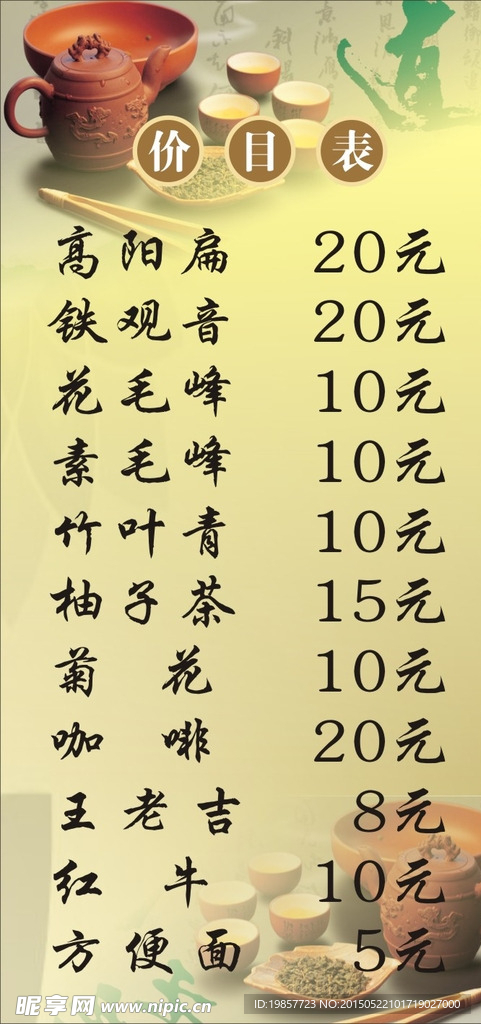 价目表
高阳扁 20元
铁观音 20元
花毛峰 10元
素毛峰 10元
竹叶青 10元
柚子茶 15元
菊花 10元
咖啡 20元
王老吉 8元
红牛 10元
方便面 5元
昵享网 www.nipic.cn
ID:19857723 NO:20150522101719027000